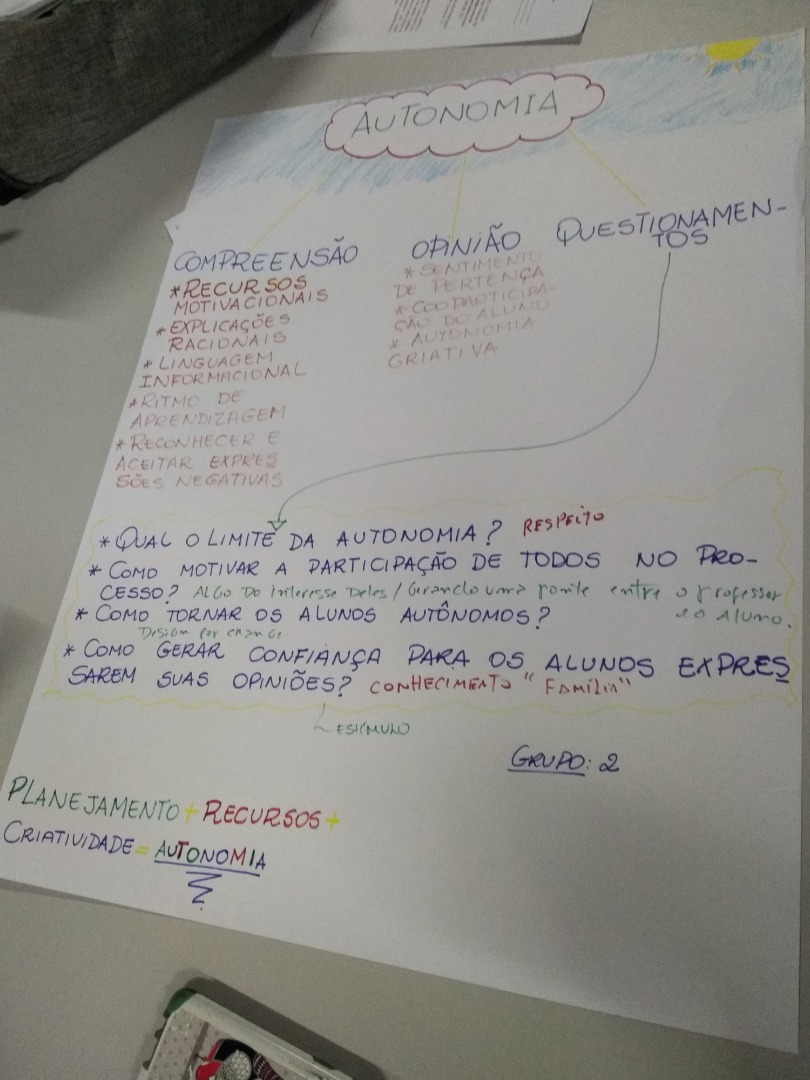 AUTONOMIA
COMPREENSÃO
* RECURSOS
MOTIVACIONAIS
* EXPLICAÇÕES
RACIONAIS
* LINGUAGEM
INFORMACIONAL
* RITMO DE
APRENDIZAGEM
* RECONHECER E
ACEITAR EXPRES
SÕES NEGATIVAS
OPINIÃO
* SENTIMENTO
DE PERTENÇA
* COOPARTICIPA-
ÇÃO DO ALUNO
* AUTONOMIA
CRIATIVA
QUESTIONAMEN-
TOS
* QUAL O LIMITE DA AUTONOMIA? RESPEITO
* COMO MOTIVAR A PARTICIPAÇÃO DE TODOS NO PRO-
CESSO? ALGO DO Interesse Deles / Gerando uma ponte entre o professor
e o Aluno.
* COMO TORNAR OS ALUNOS AUTÔNOMOS?
Design for change
* COMO GERAR CONFIANÇA PARA OS ALUNOS EXPRES
SAREM SUAS OPINIÕES? CONHECIMENTO "FAMÍLIA"
ESTÍMULO
GRUPO: 2
PLANEJAMENTO + RECURSOS +
CRIATIVIDADE = AUTONOMIA